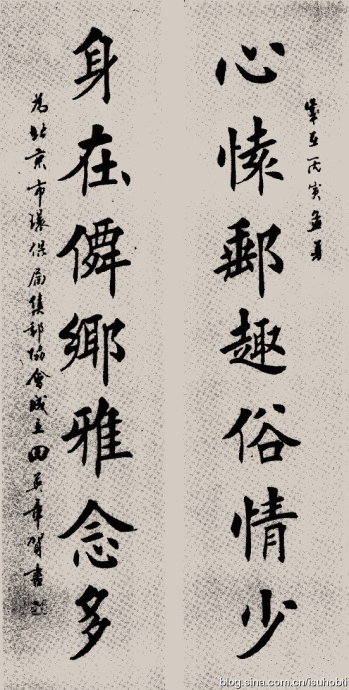 歲在丙寅孟夏
心愫郵趣俗情少
身在僊鄉雅念多
為北京市環保局集郵協會成立四周年賀書
blog.sina.com.cn/isuhobli